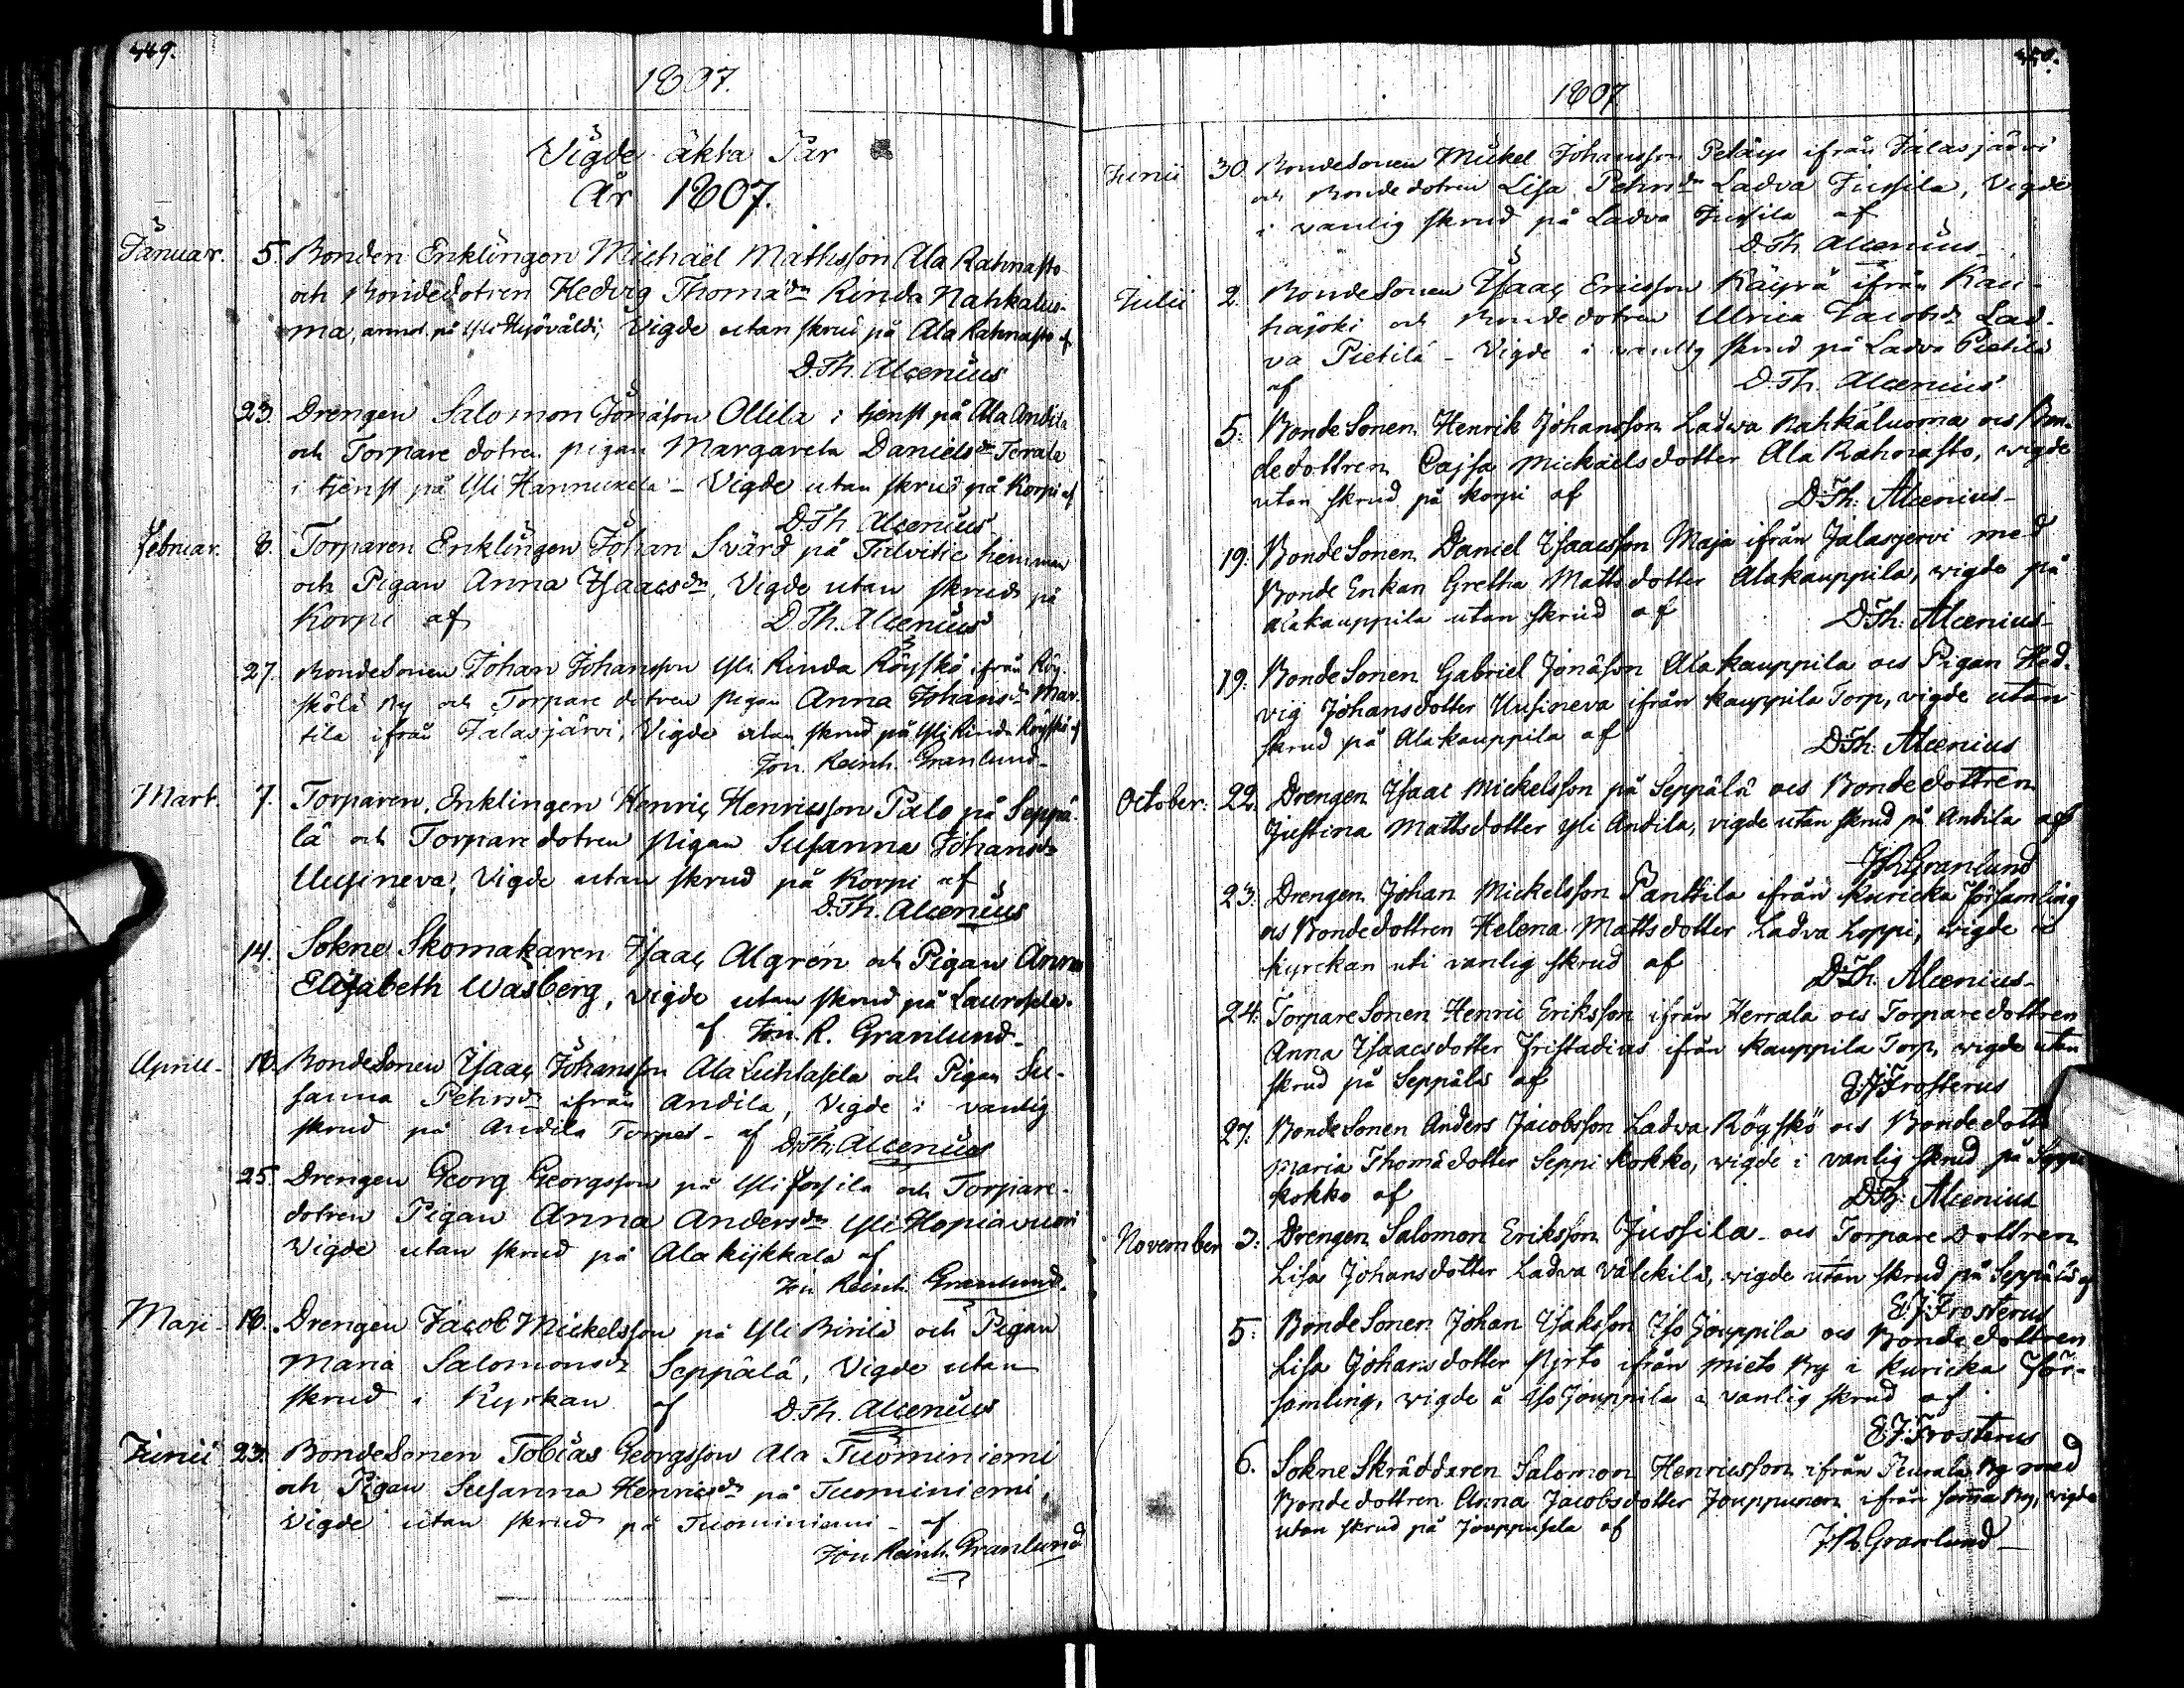 449.
1807.
Vigde äkta Par
År 1807.
Januar. 5. Bonden Enklingen Michaël Mathsson Ala Rahnasto
och Bondedotren Hedvig Thomædr Rinda Nahkaluo-
ma, på Yli Hyöväldi, Vigde utan skrud på Ala Rahnasto af
D. Th. Alcenius
23. Drengen Salomon Jonasson Ollila i tjenst på Ala Andila
och Torpare dotren pigan Margareta Danielsdr Terrala
i tjenst på Yli Hannuxela - Vigde utan skrud på Korpi af
D. Th. Alcenius
Februar. 8. Torparen Enklingen Johan Svärd på Tulvitie hemman
och Pigan Anna Isaacsdr, Vigde utan skrud på
Korpi af D. Th. Alcenius
27. BondeSonen Johan Johansson Yli Rinda Röyskö ifrån Röy-
skölä By och Torpare dotren pigan Anna Johansdr Mar-
tila ifrån Jalasjärvi, Vigde utan skrud på Yli Rinda Röyskö af
Jon. Reinh. Granlund
Mart. 7. Torparen Enklingen Henric Henricsson Palo på Seppä-
lä och Torparedotren pigan Susanna Johansdr
Uusineva, Vigde utan skrud på Korpi af
D. Th. Alcenius
14. Sokne Skomakaren Isaac Algrén och Pigan Anna
Elizabeth Wasberg, vigde utan skrud på Laurosela.
af Jon. R. Granlund
Aprill - 18. BondeSonen Isaac Johansson Ala Luhtasela och Pigan Su-
sanna Pehrsdr ifrån Andila, Vigde i vanlig
skrud på Andila Torpet - af D. Th. Alcenius
25. Drengen Georg Georgsson på Yli Jossila och Torpare-
dotren Pigan Anna Andersdr Yli Hopiavuori
Vigde utan skrud på Ala kykkala af
Jon Reinh. Granlund.
Maji - 18. Drengen Jacob Mickelsson på Yli Birilä och Pigan
Maria Salomonsdr Seppälä, Vigde utan
skrud i Kyrkan af D. Th. Alcenius
Junii 23. BondeSonen Tobias Georgsson Ala Tuominiemi
och Pigan Susanna Henricsdr på Tuominiemi,
Vigde utan skrud på Tuominiemi - af
Jon Reinh. Granlund
450.
1807
Junii 30. BondeSonen Mickel Johansson Peläys ifrån Jalasjärvi
och Bondedotren Lisa Pehrsdr Ladva Jussila, Vigde
i vanlig skrud på Ladva Jussila af
D. Th. Alcenius
Julii 2. BondeSonen Isaac Ericsson Käyrä ifrån Kau-
hajoki och Bondedotren Ulrica Jacobsdr Lad-
va Pietilä - Vigde i vanlig skrud på Ladva Pietilä
af D. Th. Alcenius
5: BondeSonen Henrik Johansson Ladwa Nahkaluoma och Bon-
dedottren Cajsa Mickaelsdotter Ala Rahnasto, wigde
utan skrud på Korpi af D: Th: Alcenius-
19: BondeSonen Daniel Isaacsson Maja ifrån Jalasjervi med
Bonde Enkan Gretha Mattsdotter Alakauppila, wigde på
Alakauppila utan skrud af D: Th: Alcenius-
19: BondeSonen Gabriel Jonasson Alakauppila och Pigan Hed-
vig Johansdotter Uusineva ifrån Kauppila Torp, vigde utan
skrud på Alakauppila af D: Th: Alcenius
October: 22. Drengen Isaac Mickelsson på Seppälä och Bondedottren
Justina Mattsdotter Yli Andila, vigde utan skrud på Andila af
J. R. Granlund
23: Drengen Johan Mickelsson Panttila ifrån Kuricka Församling
och Bondedottren Helena Mattsdotter Ladva Loppi, wigde i
kyrckan uti vanlig skrud af D: Th. Alcenius-
24: TorpareSonen Henric Eriksson ifrån Herrala och Torparedottren
Anna Isaacsdotter Fristadius ifrån Kauppila Torp, wigde utan
skrud på Seppälä af E. J. Frosterus
27: BondeSonen Anders Jacobsson Ladwa Röyskö och Bondedott
Maria Thomædotter Seppi kokko, wigde i vanlig skrud på Seppi
kokko af D: Th: Alcenius
November 3: Drengen Salomon Eriksson Jussila och Torpare Dottren
Lisa Johansdotter Ladva Välckilä, wigde utan skrud på Seppälä af
E. J. Frosterus
5: BondeSonen Johan Isaksson Iso Jouppila och Bondedottren
Lisa Johansdotter Pirto ifrån Mieto By i Kuricka För-
samling, wigde å Iso Jouppila i vanlig skrud af
E. J. Frosterus
6. Sokne Skräddaren Salomon Henricsson ifrån Peurala By med
Bondedottren Anna Jacobsdotter Jouppunen ifrån samma By, wigde
utan skrud på Jouppusela af J. R. Granlund